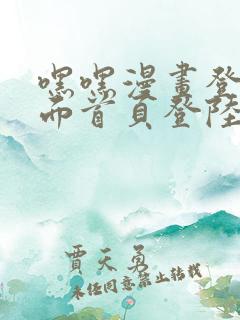 嘿嘿漫畫登
而首頁登陸
賈天勇
未經同意禁止轉載